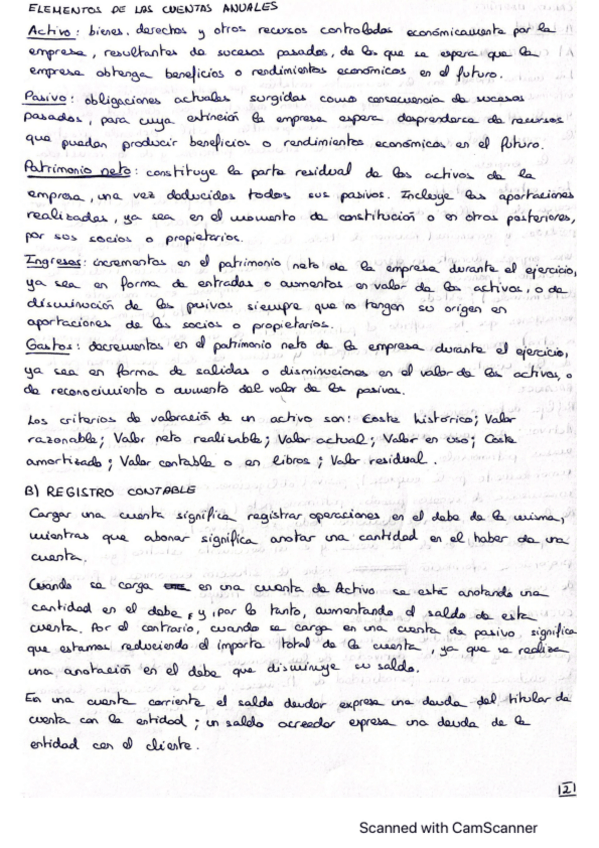 ELEMENTOS DE LAS CUENTAS ANUALES
Activo: bienes, derechos y otros recursos controlados económicamente por la
empresa, resultantes de sucesos pasados, de los que se espera que la
empresa obtenga beneficios o rendimientos económicos en el futuro.
Pasivo: obligaciones actuales surgidas como consecuencia de sucesos
pasados, para cuya extinción la empresa espera desprenderse de recursos
que puedan producir beneficios o rendimientos económicos en el futuro.
Patrimonio neto: constituye la parte residual de los activos de la
empresa, una vez deducidos todos sus pasivos. Incluye las aportaciones
realizadas, ya sea en el momento de constitución o en otros posteriores,
por sus socios o propietarios.
Ingresos: incrementos en el patrimonio neto de la empresa durante el ejercicio,
ya sea en forma de entradas o aumentos en valor de los activos, o de
disminución de los pasivos siempre que no tengan su origen en
aportaciones de los socios o propietarios.
Gastos: decrementos en el patrimonio neto de la empresa durante el ejercicio,
ya sea en forma de salidas o disminuciones en el valor de los activos, o
de reconocimiento o aumento del valor de los pasivos.
Los criterios de valoración de un activo son: Coste histórico; Valor
razonable; Valor neto realizable; Valor actual; Valor en uso; Coste
amortizado; Valor contable o en libros; Valor residual.
B) REGISTRO CONTABLE
Cargar una cuenta significa registrar operaciones en el debe de la misma,
mientras que abonar significa anotar una cantidad en el haber de una
cuenta.
Cuando se carga en una cuenta de Activo se está anotando una
cantidad en el debe, y, por lo tanto, aumentando el saldo de esta
cuenta. Por el contrario, cuando se carga en una cuenta de pasivo, significa
que estamos reduciendo el importe total de la cuenta, ya que se realiza
una anotación en el debe que disminuye su saldo.
En una cuenta corriente el saldo deudor expresa una deuda del titular de
cuenta con la entidad; un saldo acreedor expresa una deuda de la
entidad con el cliente.
2
Scanned with CamScanner